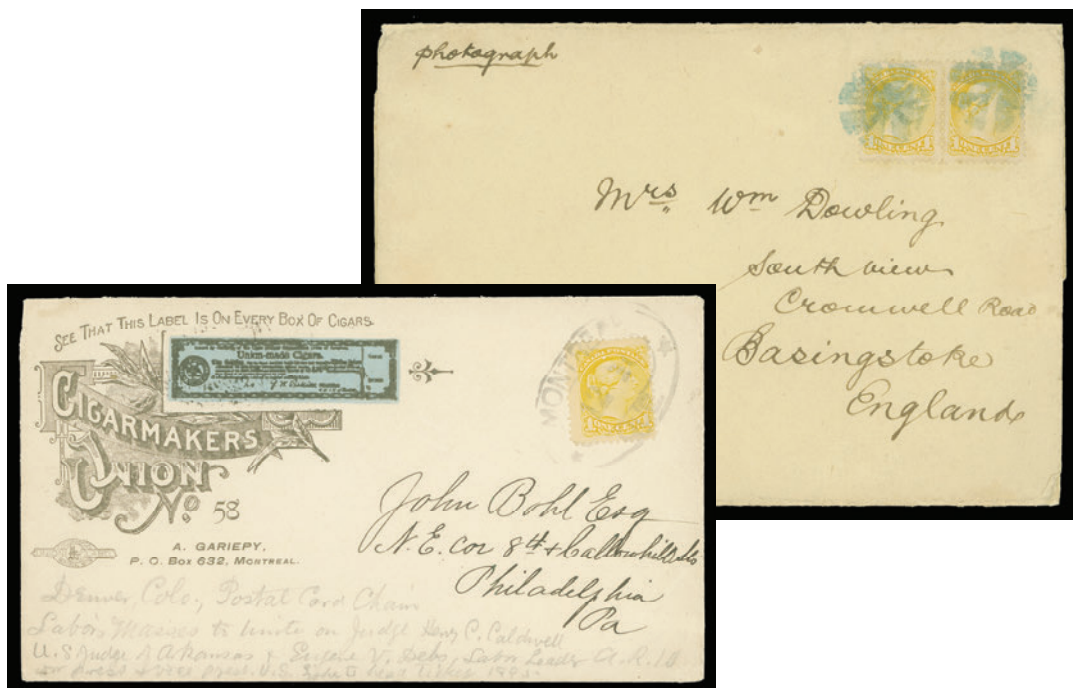 photograph
Mrs Wm Dowling
South view
Cromwell Road
Basingstoke
England
SEE THAT THIS LABEL IS ON EVERY BOX OF CIGARS.
Union-made Cigars.
CIGARMAKERS
UNION
No. 58
A. GARIEPY.
P. O. BOX 632, MONTREAL.
MONTREAL
John Bohl Esq
N. E. cor 8th & Callowhill Sts
Philadelphia
Pa
Denver, Colo., Postal Card Chain
Labor's Masses to Unite on Judge Henry C. Caldwell
U.S Judge of Arkansas & Eugene V. Debs, Labor Leader A.R.U